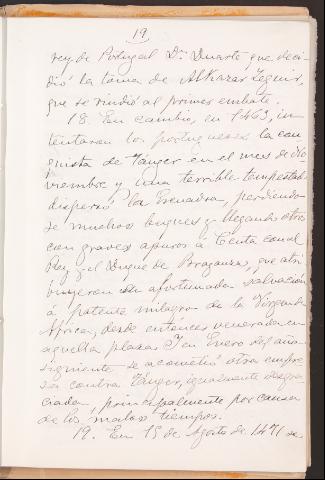 19
rey de Portugal Dn. Duarte que deci-
dió la toma de Alkazar Zeguir,
que se rindió al primer embate.
18 En cambio, en 1463, in-
tentaron los portugueses la con-
quista de Tánger en el mes de No-
viembre y una terrible tempestad
dispersó la Escuadra, perdiendo-
se muchos buques y llegando otros
con graves apuros á Ceuta con el
Rey y el Duque de Braganza, que atri-
buyeron su afortunada salvación
á patente milagro de la Virgen de
África, desde entónces venerada en
aquella plaza. Y en Enero del año
siguiente se acometió otra empre-
sa contra Tánger, igualmente desgra-
ciada, principalmente por causa
de los malos tiempos.
19. En 15 de Agosto de 1471 se